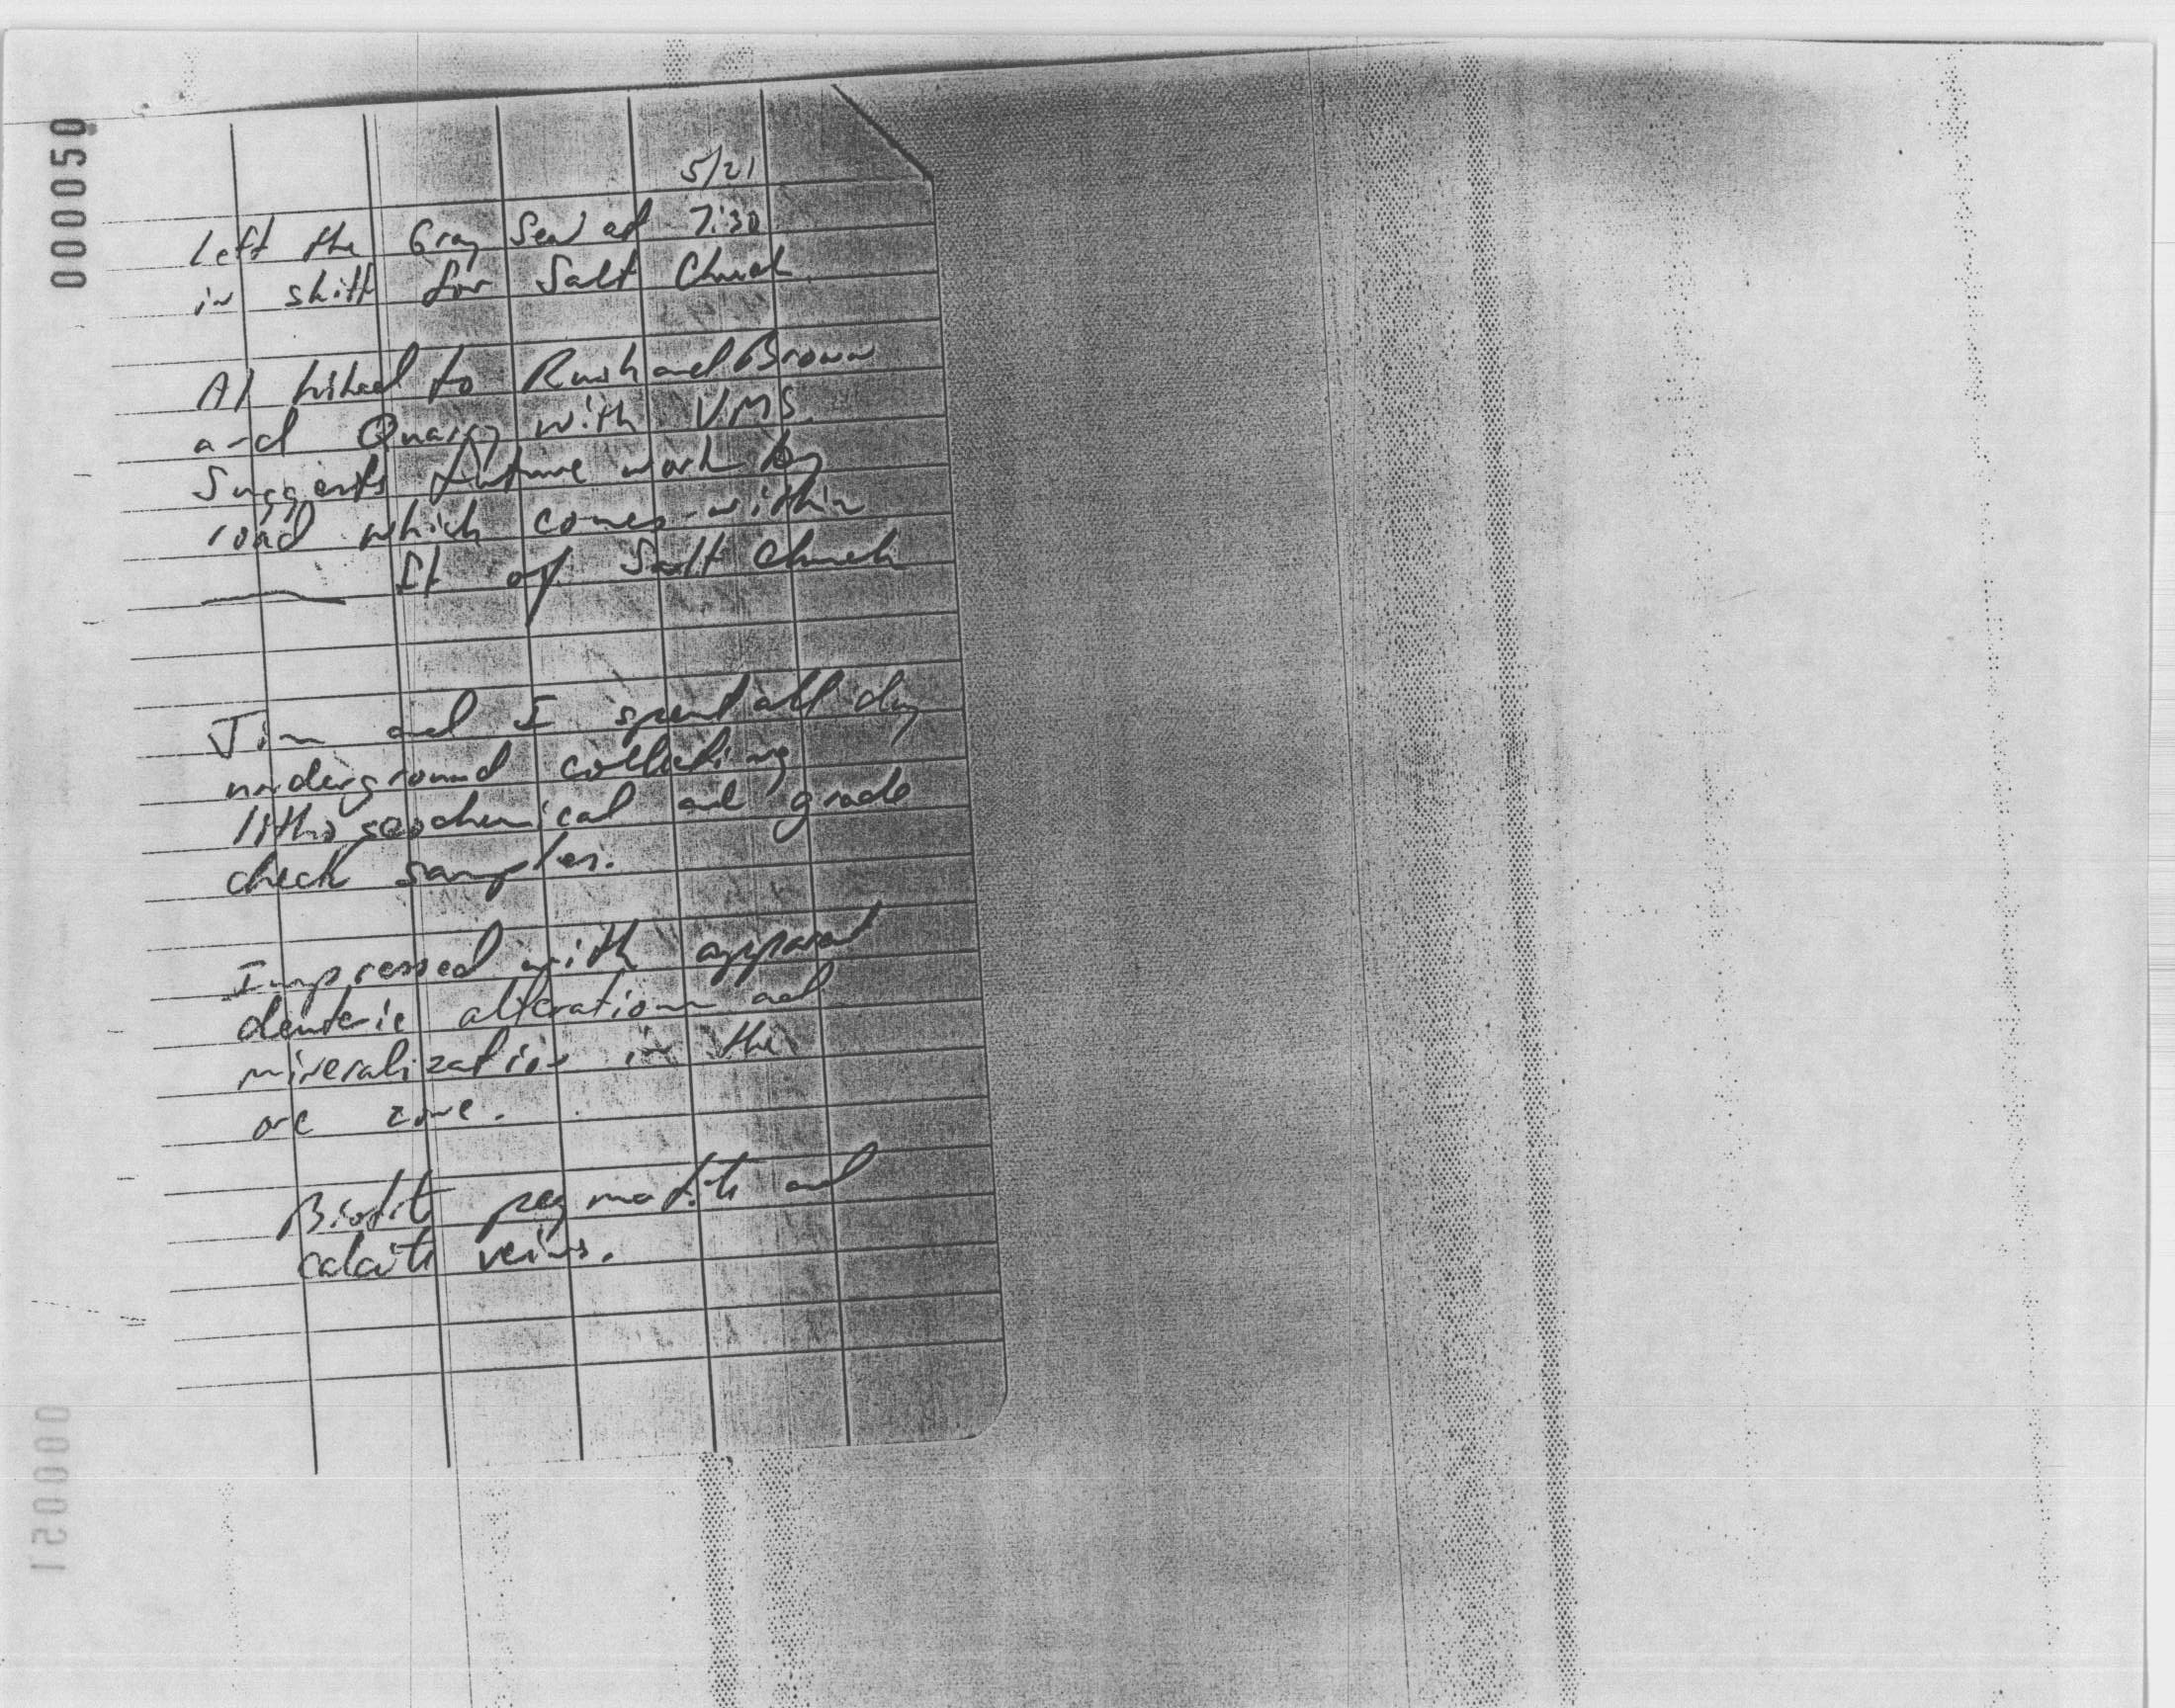 000050
5/21
Left the Gray Seal at 7:30
in skiff for Salt Chuck
Al hiked to Rush and Brown
and Quarry with VMS.
Suggests future work by
road which comes within
___ ft of Salt Chuck
Jim and I spend all day
underground collecting
lithogeochemical and grade
check samples.
Impressed with apparent
deuteric alteration and
mineralization in the
ore zone.
Biotite pegmatite and
calcite veins.
000051